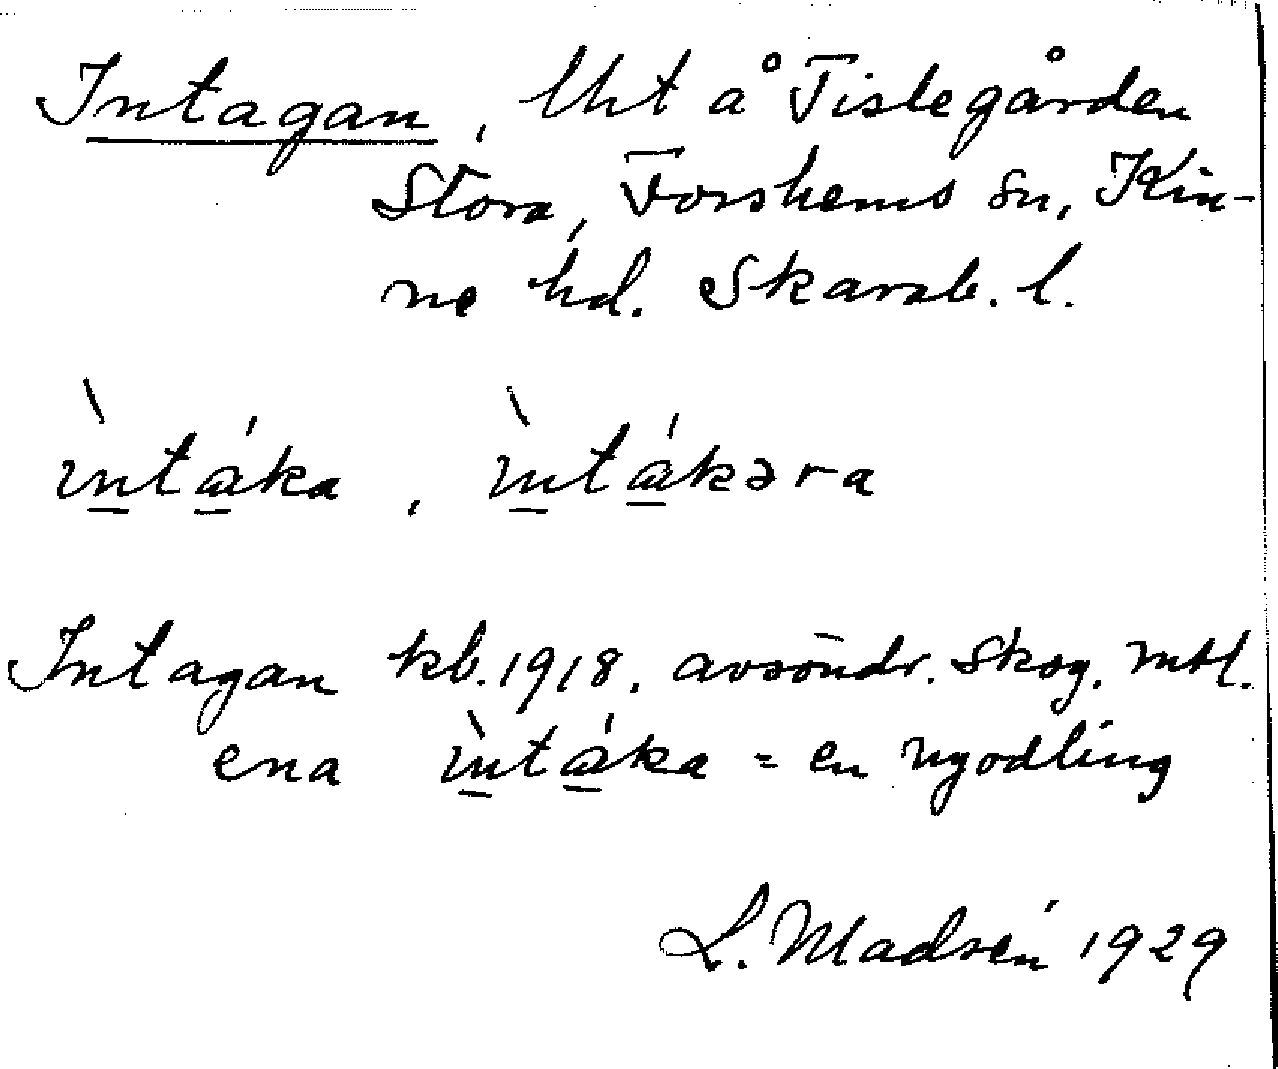 Intagan, Uht å Tislegården
Stora, Forshems sn, Kin-
ne hd. Skarab. l.
ìntáka, ìntákəra
Intagan kb. 1918. avsöndr. Skog. Mtl.
ena ìntáka = en nyodling
L. Madsén 1929